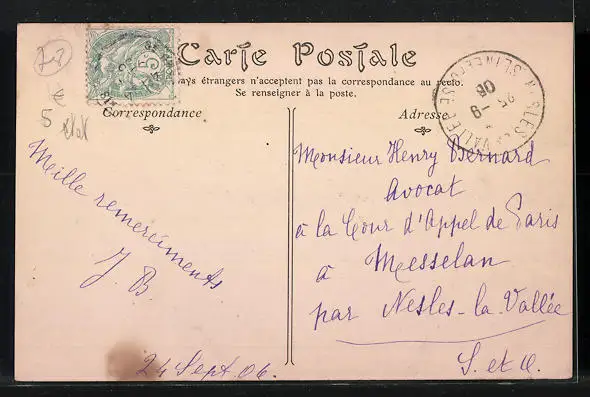 Carte Postale
pays étrangers n'acceptent pas la correspondance au recto.
Se renseigner à la poste.
Correspondance
Adresse
5
€
5
Meille remerciments
J. B.
24 Sept. 06.
Monsieur Henry Bernard
Avocat
à la Cour d'Appel de Paris
à Messelan
par Nesles-la-Vallée
S. et O.
NESLES LA VALLÉE
SEINE ET OISE
25 - 9
06